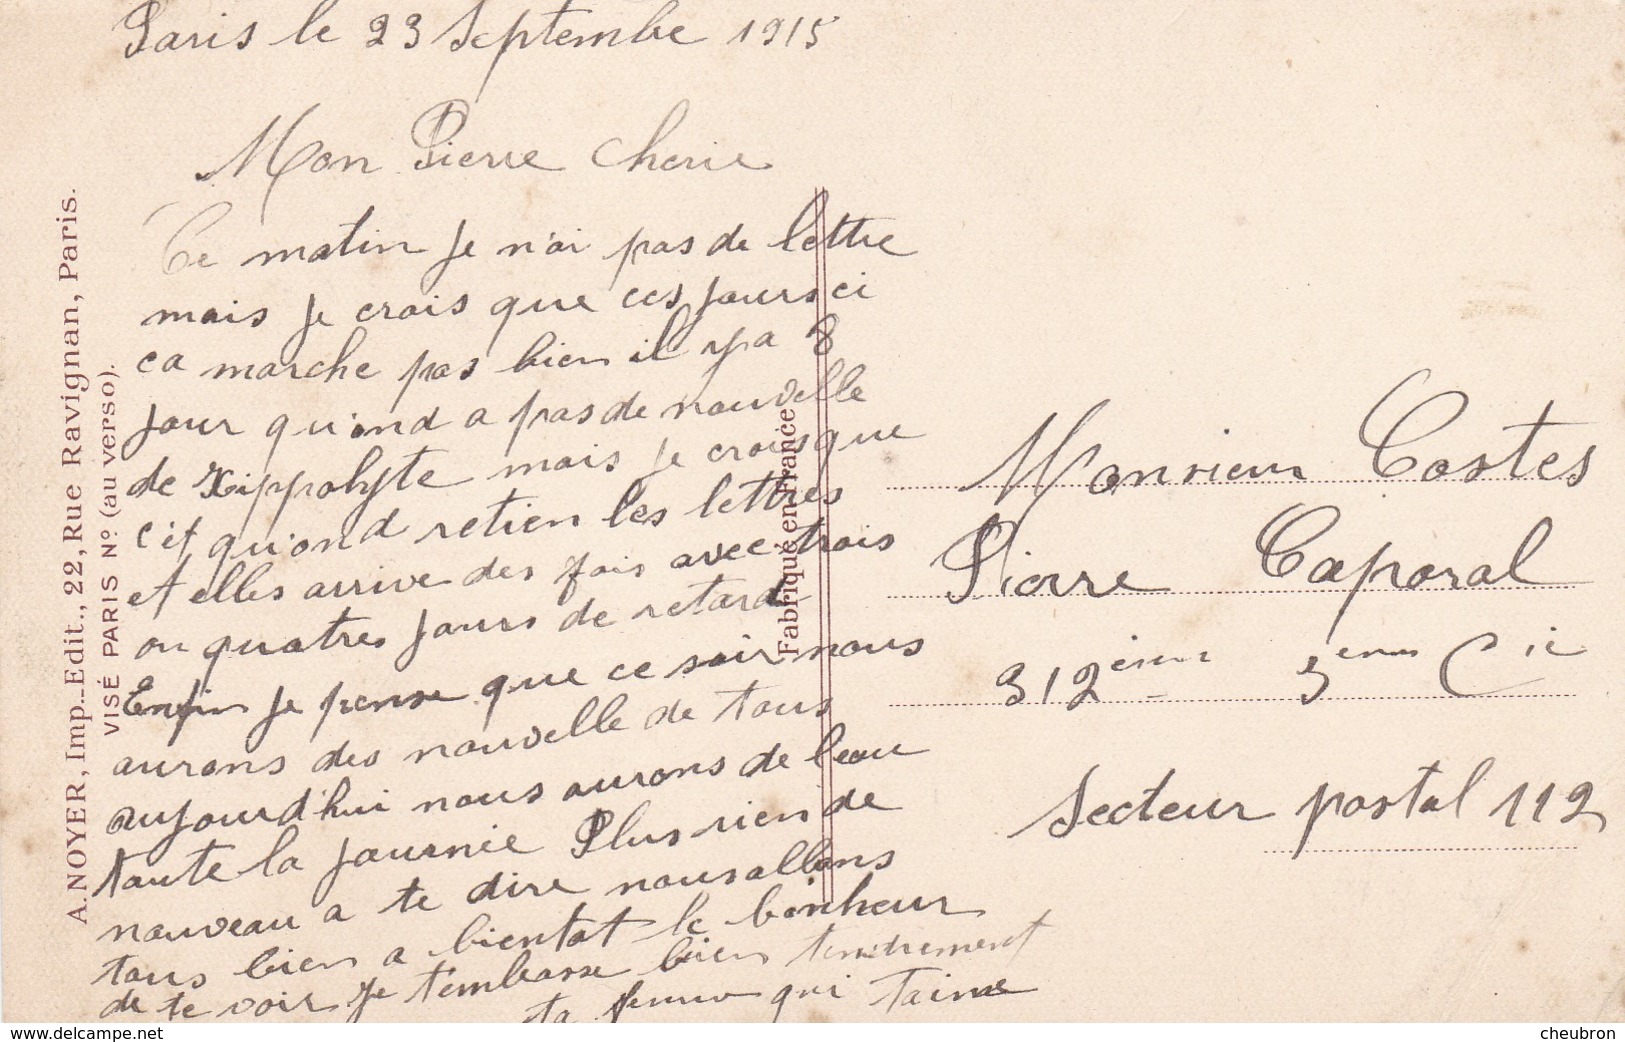 Paris le 23 Septembre 1915
Mon Pierre Cherie
Ce matin je n'ai pas de lettre
mais je crois que ces jours ci
ca marche pas bien il y a 8
jour qu'ond a pas de nouvelle
de Hippolyte mais je crois que
c'est qu'ond retien les lettres
et elles arrive des fois avec trois
ou quatres jours de retard
Enfin je pense que ce soir nous
aurons des nouvelle de tous
aujourd'hui nous aurons de l'eau
toute la journée Plus rien de
nouveau a te dire nous allons
tous bien a bientot le bonheur
de te voir je t'embrasse bien tendrement
ta femme qui t'aime
Monsieur Costes
Pierre Caporal
312ème 5eme Cie
Secteur postal 112
A. NOYER, Imp.-Edit., 22, Rue Ravignan, Paris.
VISÉ PARIS N° (au verso).
Fabriqué en France
www.delcampe.net
cheubron